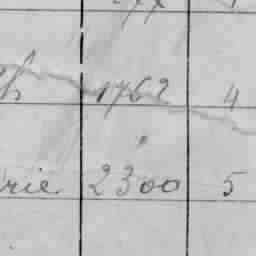 1762 4
"
rie 2300 5